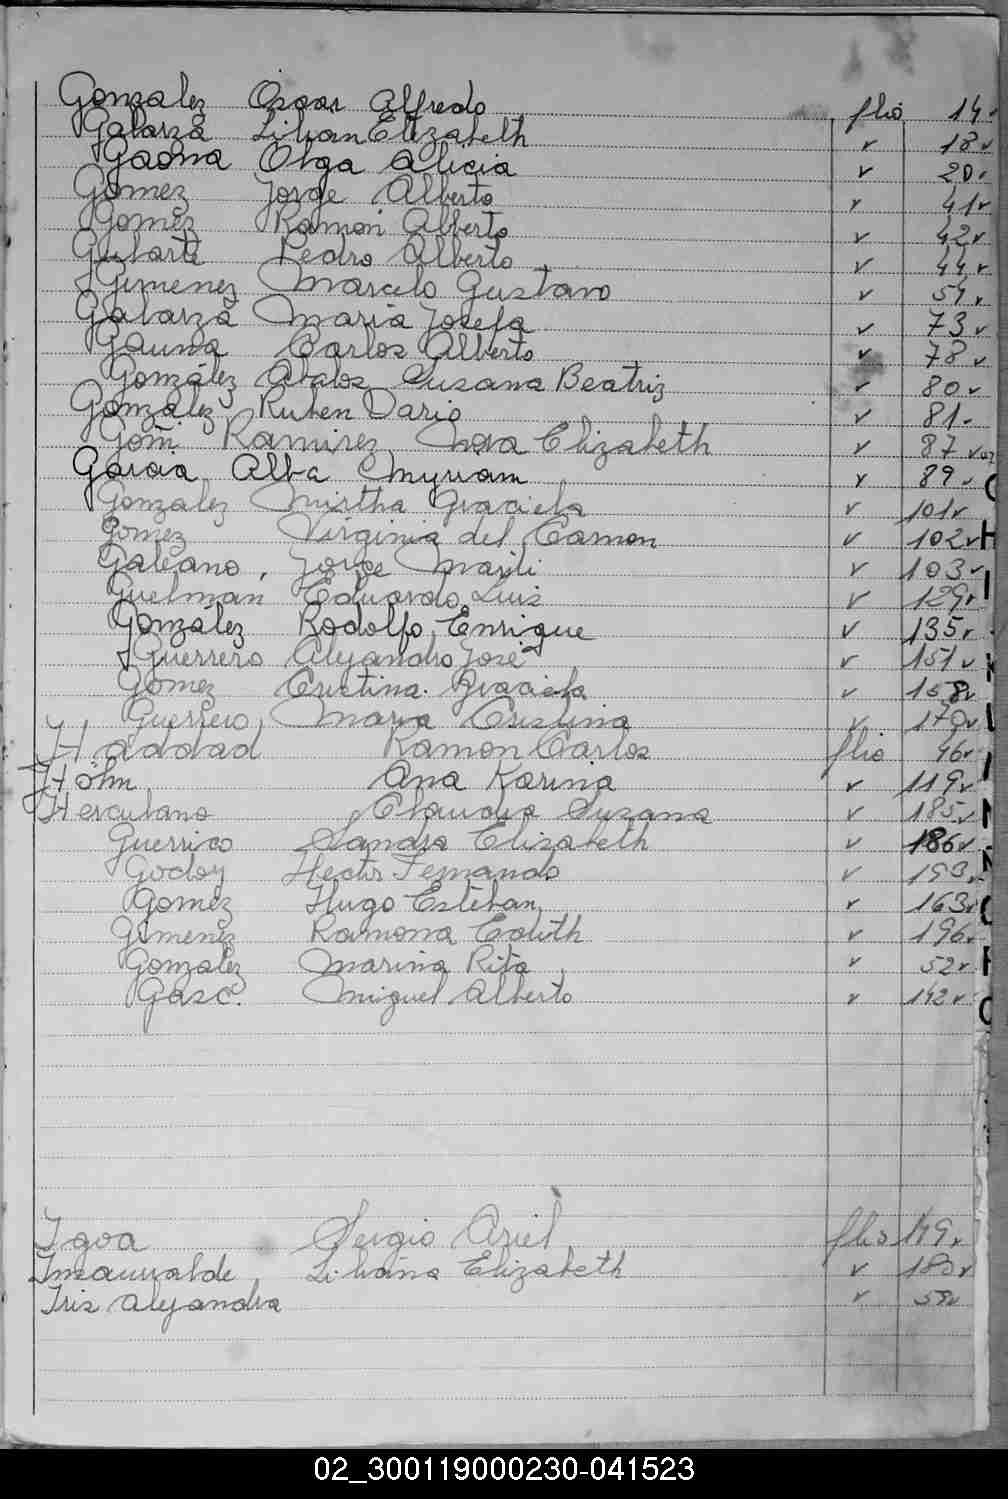 Gonzalez Oscar Alfredo flio 14v
Galarza Lilian Elizabeth v 18v
Gaona Olga Alicia v 20v
Gomez Jorge Alberto v 41v
Gomez Ramon Alberto v 42v
Pedro Alberto v 44v
Gimenez Marcelo Gustavo v 51v
Galarza Maria Josefa v 73v
Gauna Carlos Alberto v 78v
González Abalos Susana Beatriz v 80v
Gonzalez Ruben Dario v 81v
Goñi Ramirez Nora Elizabeth v 87v
Garcia Alba Myriam v 89v
Gonzalez Mirtha Graciela v 101v
Gomez Virginia del Carmen v 102v
Galeano, Jorge v 103v
Guelman Eduardo Luis v 129v
González Rodolfo Enrique v 135v
Guerrero Alejandro José v 151v
Gomez Cristina Graciela v 158v
Guerrero Maria Cristina v 170v
Haddad Ramon Carlos flio 46v
Höhn Ana Karina v 119v
Herculano Claudia Susana v 185v
Guerrico Sandra Elizabeth v 186v
Godoy Hector Fernando v 193v
Gomez Hugo Esteban v 163v
Gimenez Ramona Edith v 196v
Gonzalez Marina Rita v 52v
Gasc. Miguel Alberto v 142v
Igoa Sergio Ariel flio 149v
Liliana Elizabeth v 180v
Iris Alejandra v
02_300119000230-041523